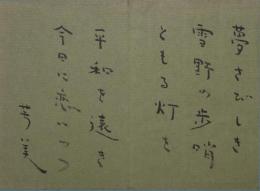 さびしき
雪野の歩哨
ともる灯を
平和を遠き
今日に つつ